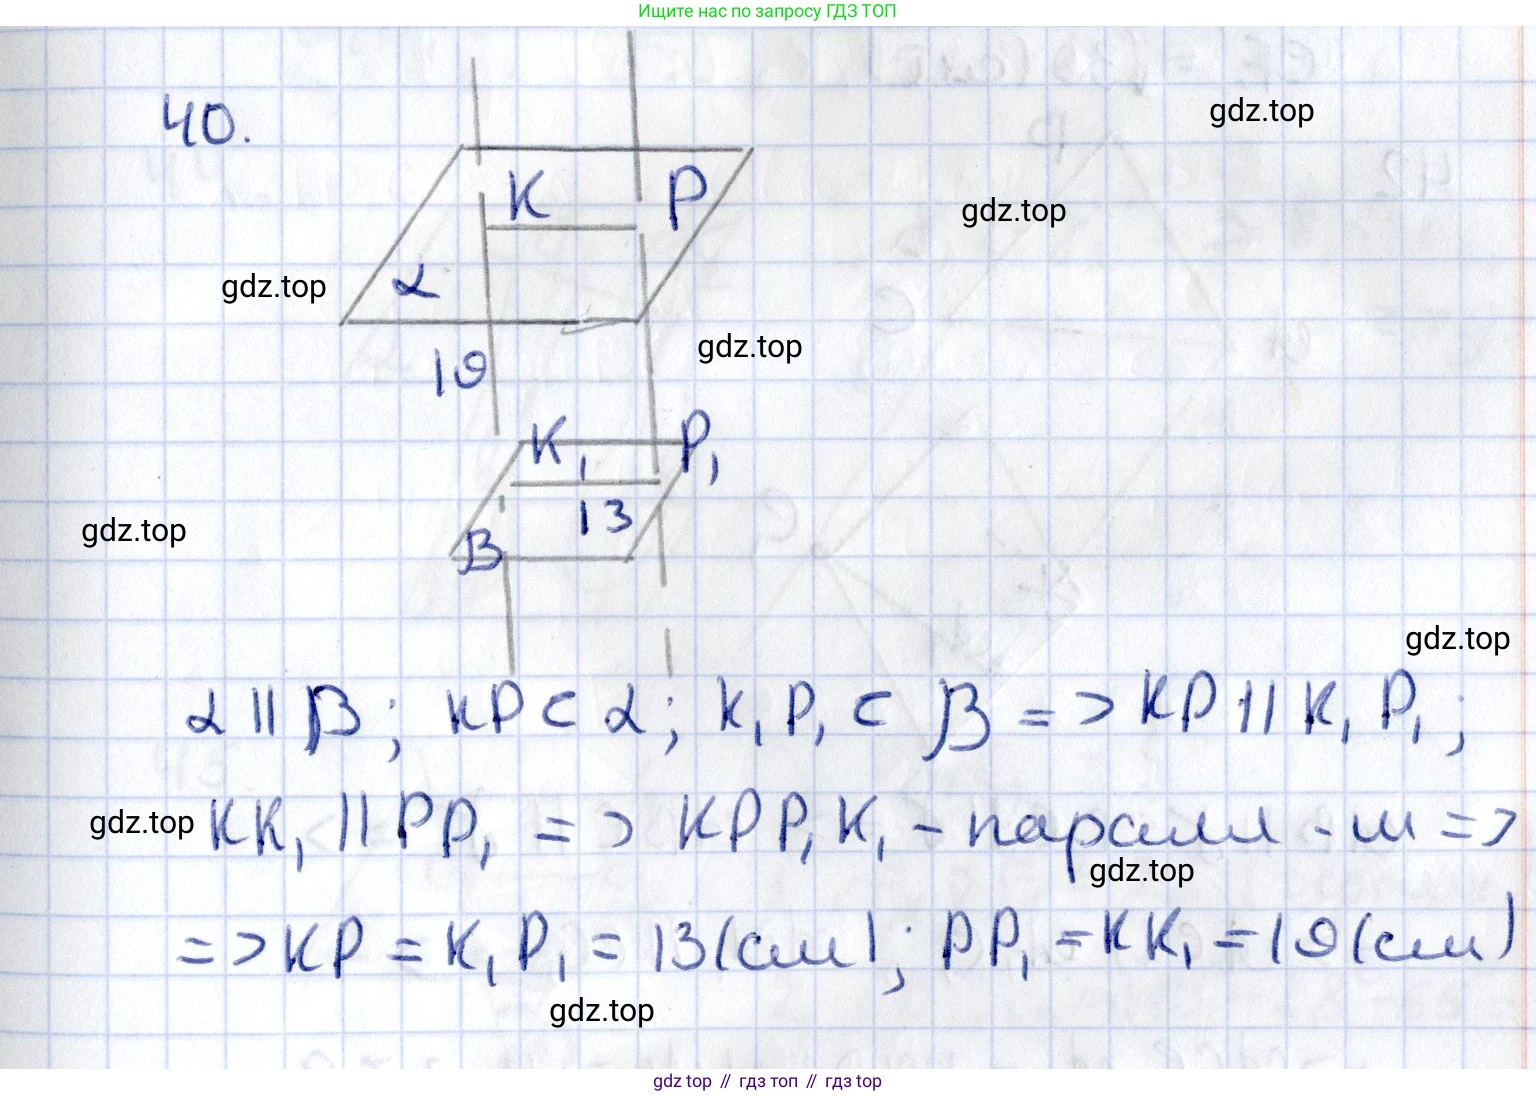 Ищите нас по запросу ГДЗ ТОП
40.
gdz.top
K P
gdz.top
α
gdz.top
gdz.top
19
K₁ P₁
13
gdz.top
β
gdz.top
α || β; KP ⊂ α; K₁P₁ ⊂ β => KP || K₁P₁;
gdz.top
KK₁ || PP₁ => KPP₁K₁ - паралл-м =>
gdz.top
=> KP = K₁P₁ = 13 (см); PP₁ = KK₁ = 19 (см)
gdz.top
gdz top // гдз топ // гдз top